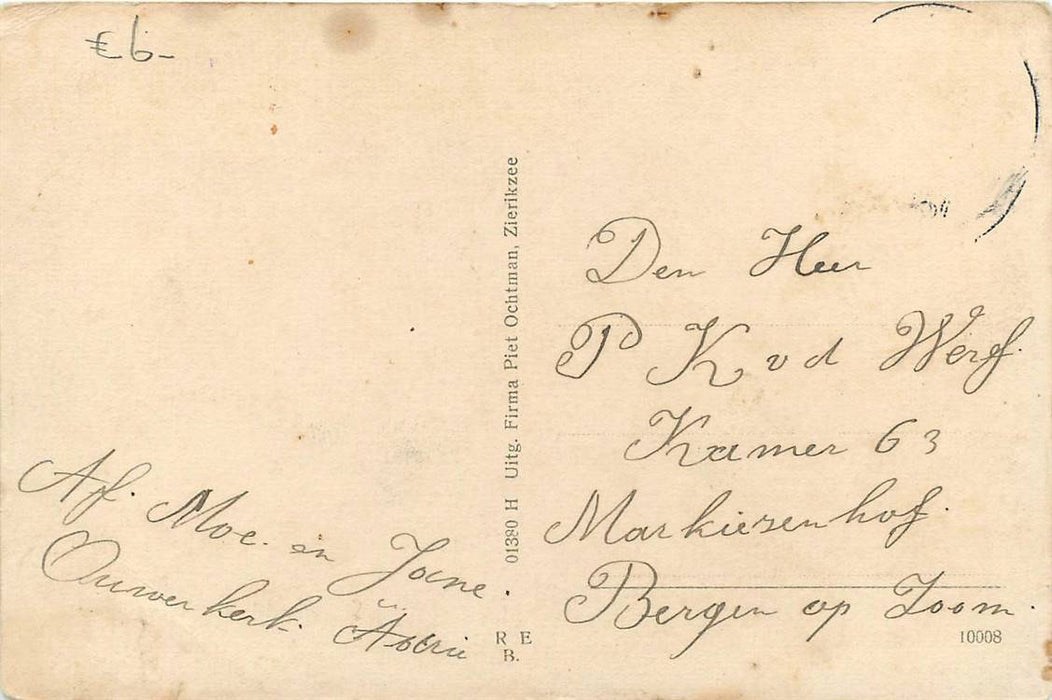 € 6-
Den Heer
P K v d Werf.
Kamer 63
Markiezenhof.
Bergen op Zoom.
Af. Moe. en
Ouwerkerk.
01380 H Uitg. Firma Piet Ochtman, Zierikzee
R E
B.
10008